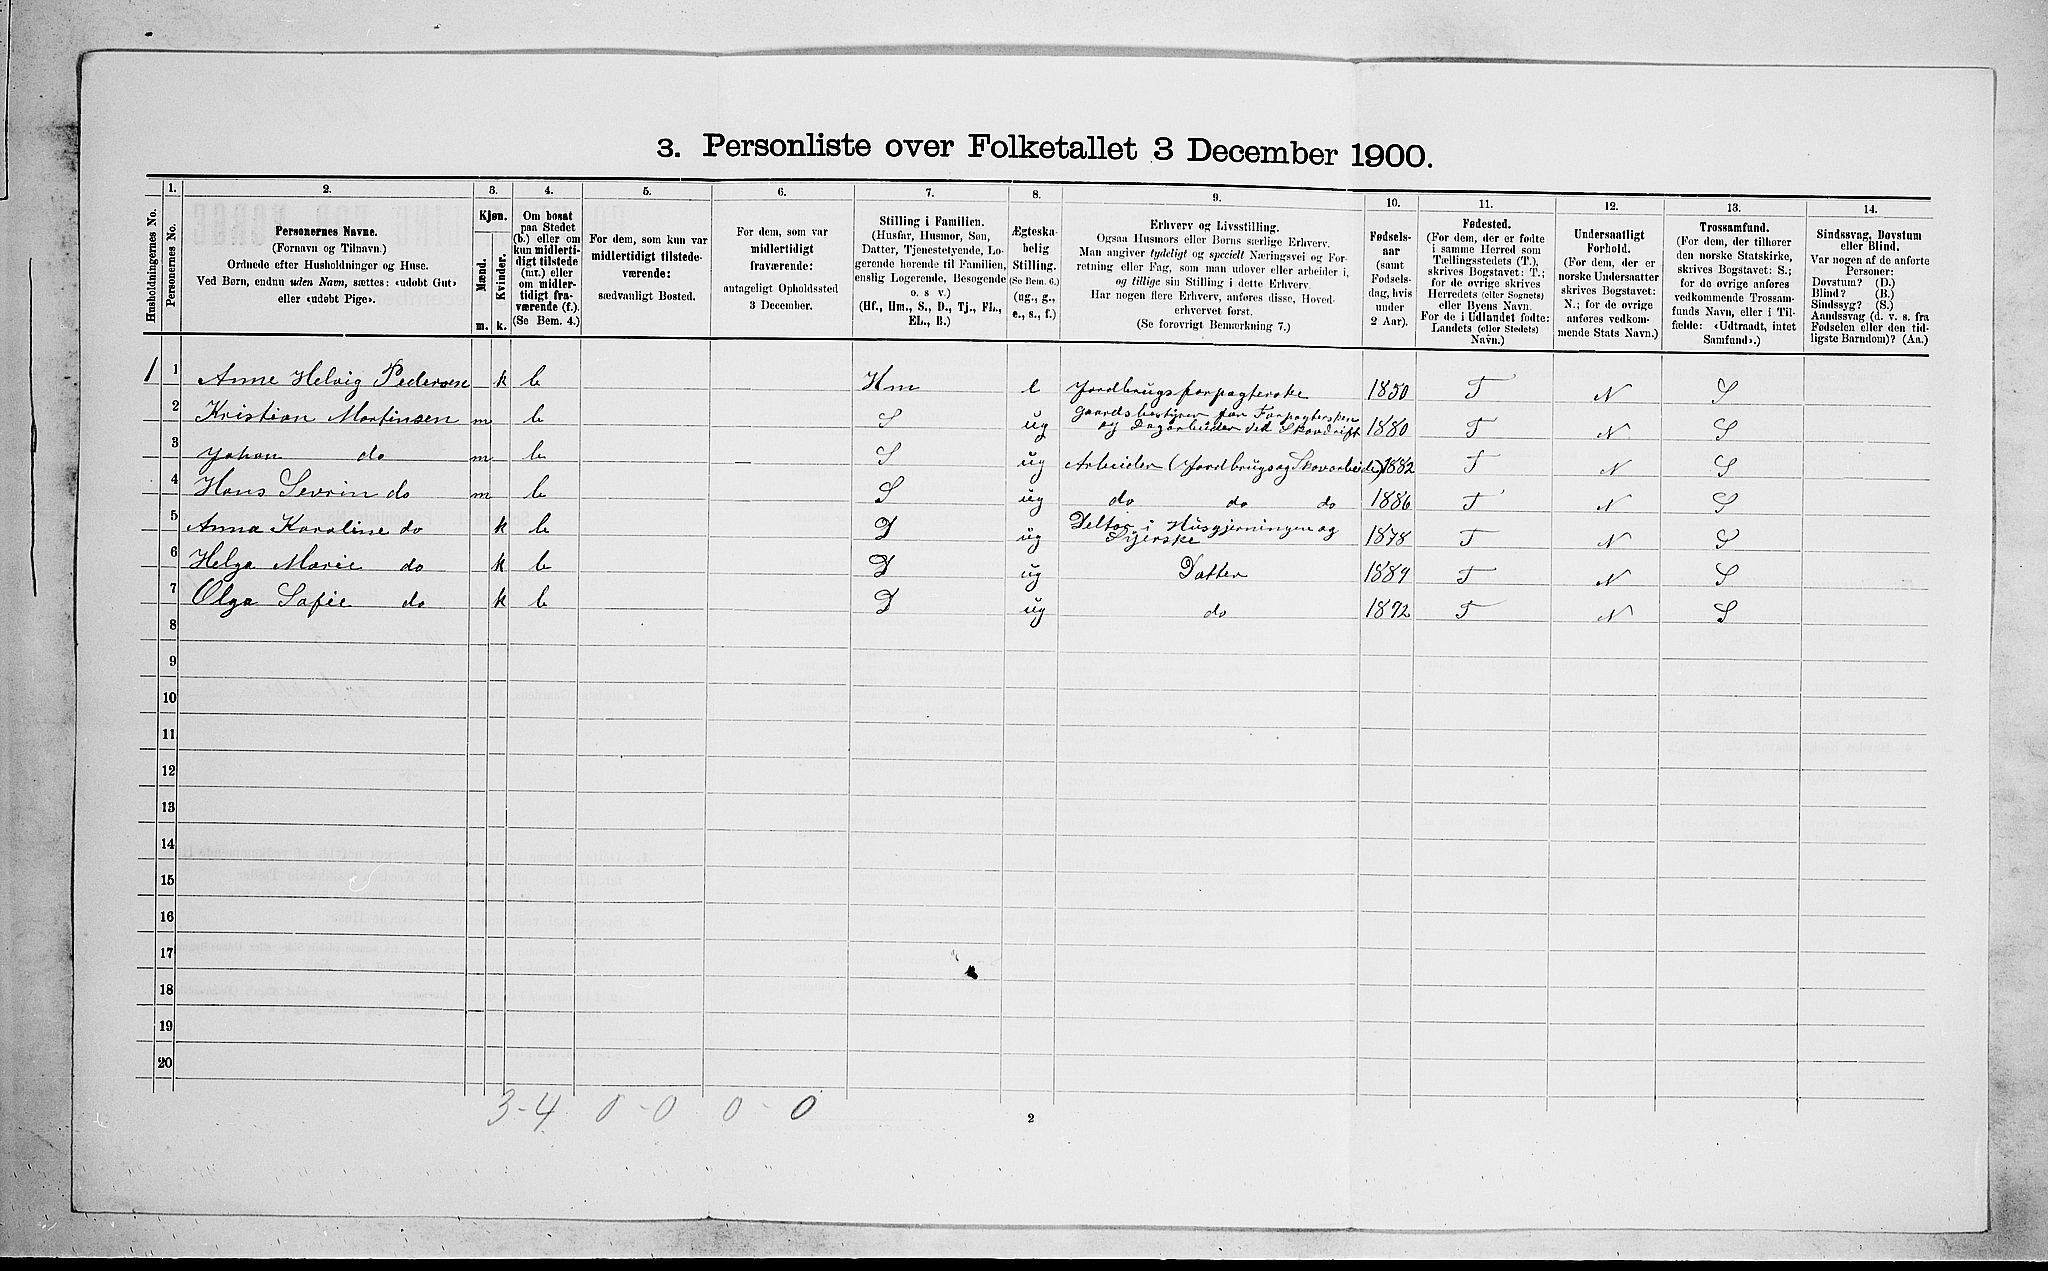 3. Personliste over Folketallet 3 December 1900.
1. 2. 3. 4. 5. 6. 7. 8. 9. 10. 11. 12. 13. 14.
Husholdningernes No.
Personernes No.
Personernes Navne.
(Fornavn og Tilnavn.)
Ordnede efter Husholdninger og Huse.
Ved Børn, endnu uden Navn, sættes: «udøbt Gut»
eller «udøbt Pige».
Kjøn.
Mænd.
Kvinder.
m. k.
Om bosat
paa Stedet
(b.) eller om
kun midlerti-
digt tilstede
(mt.) eller
om midler-
tidigt fra-
værende (f.).
(Se Bem. 4.)
For dem, som kun var
midlertidigt tilstede-
værende:
sædvanligt Bosted.
For dem, som var
midlertidigt
fraværende:
antageligt Opholdssted
3 December.
Stilling i Familien.
(Husfar, Husmor, Søn,
Datter, Tjenestetyende, Lo-
gerende hørende til Familien,
enslig Logerende, Besøgende
o. s v.)
(Hf., Hm., S., D., Tj., FL.,
EL., B.)
Ægteska-
belig
Stilling.
(Se Bem. 6.)
(ug., g.,
e., s., f.)
Erhverv og Livsstilling.
Ogsaa Husmors eller Børns særlige Erhverv.
Man angiver tydeligt og specielt Næringsvei og For-
retning eller Fag, som man udøver eller arbeider i,
og tillige sin Stilling i dette Erhverv.
Har nogen flere Erhverv, anføres disse, Hoved-
erhvervet først.
(Se forøvrigt Bemærkning 7.)
Fødsels-
aar
(samt
Fødsels-
dag, hvis
under
2 Aar).
Fødested.
(For dem, der er fødte
i samme Herred som
Tællingsstedets (T.),
skrives Bogstavet: T.;
for de øvrige skrives
Herredets (eller Sognets)
eller Byens Navn.
For de i Udlandet fødte:
Landets (eller Stedets)
Navn.)
Undersaatligt
Forhold.
(For dem, der er
norske Undersaatter
skrives Bogstavet:
N.; for de øvrige
anføres vedkom-
mende Stats Navn.)
Trossamfund.
(For dem, der tilhører
den norske Statskirke,
skrives Bogstavet: S.;
for de øvrige anføres
vedkommende Trossam-
funds Navn, eller i Til-
fælde: «Udtraadt, intet
Samfund».)
Sindssvag, Døvstum
eller Blind.
Var nogen af de anførte
Personer:
Døvstum? (D.)
Blind? (B.)
Sindssyg? (S.)
Aandssvag (d. v. s. fra
Fødselen eller den tid-
ligste Barndom)? (Aa.)
1 1 Anne Helvig Pedersen k b Hm e Jordbrugsforpagterske 1850 T N S
2 Kristian Martinsen m b S ug Gaardsbestyrer for Forpagtersken
og Dagarbeider ved Skovdrift 1880 T N S
3 Johan do m b S ug Arbeider (Jordbrugs og Skovarbeide) 1882 T N S
4 Hans Sevrin do m b S ug do do do 1886 T N S
5 Anna Karoline do k b D ug Deltar i Husgjerningen og
Syerske 1878 T N S
6 Helga Marie do k b D ug Datter 1889 T N S
7 Olga Sofie do k b D ug do 1892 T N S
8
9
10
11
12
13
14
15
16
17
18
19
20
3-4 0-0 0-0
2